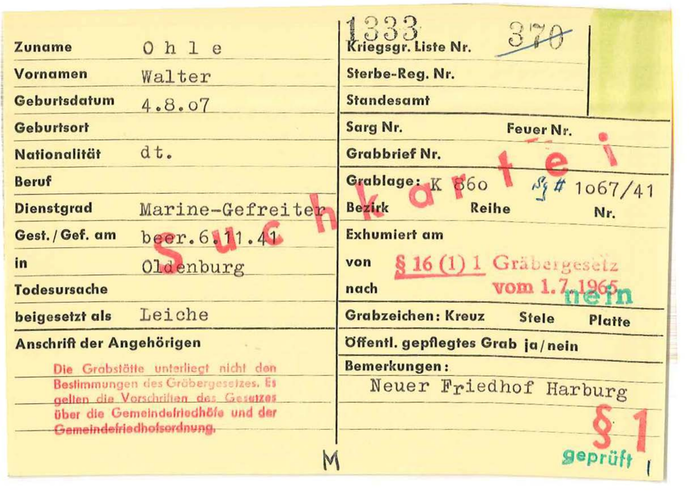 Zuname Ohle
Vornamen Walter
Geburtsdatum 4.8.o7
Geburtsort
Nationalität dt.
Beruf
Dienstgrad Marine-Gefreiter
Gest./Gef. am beer.6.11.41
in Oldenburg
Todesursache
beigesetzt als Leiche
Anschrift der Angehörigen
Die Grabstätte unterliegt nicht den
Bestimmungen des Gräbergesetzes. Es
gelten die Vorschriften des Gesetzes
über die Gemeindefriedhöfe und der
Gemeindefriedhofsordnung.
M
Suchkartei
1333
Kriegsgr. Liste Nr. 370
Sterbe-Reg. Nr.
Standesamt
Sarg Nr. Feuer Nr.
Grabbrief Nr.
Grablage: K 86o 1o67/41
Bezirk Reihe Nr.
Exhumiert am
von § 16 (1) 1 Gräbergesetz
nach vom 1.7.1965
nein
Grabzeichen: Kreuz Stele Platte
Öffentl. gepflegtes Grab ja/nein
Bemerkungen:
Neuer Friedhof Harburg
§ 1
geprüft